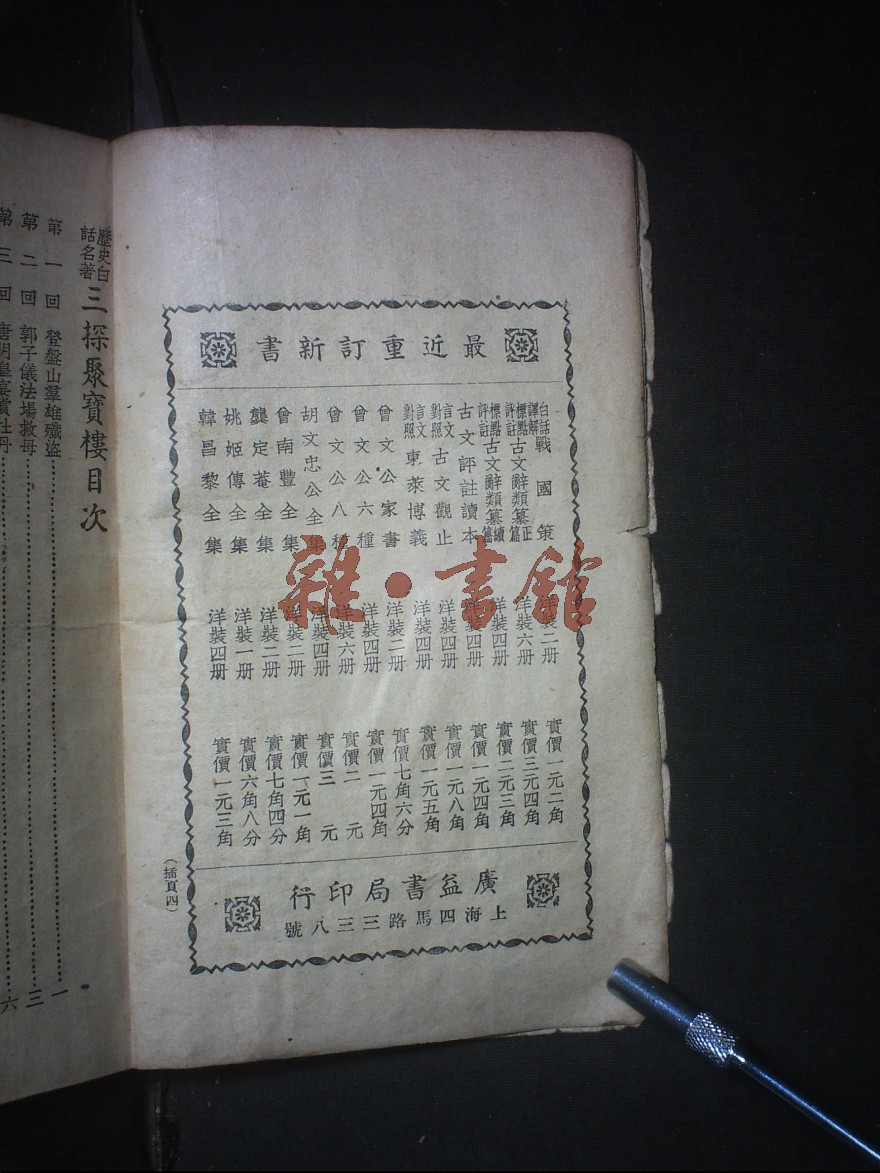 最近重訂新書
白話譯解戰國策 洋裝二册 實價一元二角
標點評註古文辭類纂正篇 洋裝六册 實價三元四角
標點評註古文辭類纂續篇 洋裝四册 實價二元三角
古文評註讀本 洋裝四册 實價一元四角
言文對照古文觀止 洋裝四册 實價一元八角
言文對照東萊博義 洋裝四册 實價一元五角
曾文公家書 洋裝二册 實價七角六分
曾文公六種 洋裝四册 實價一元四角
曾文公八種 洋裝六册 實價二元
胡文忠公全集 洋裝四册 實價三元
曾南豐全集 洋裝二册 實價一元一角
龔定菴全集 洋裝二册 實價七角四分
姚姬傳全集 洋裝一册 實價六角八分
韓昌黎全集 洋裝四册 實價一元三角
廣益書局印行
上海四馬路三三八號
(插頁四)
歷史白話名著 三探聚寶樓目次
第一回 登盤山羣雄殲盜 一
第二回 郭子儀法場救母 三
第三回 唐明皇宴賞牡丹 六
雜·書館